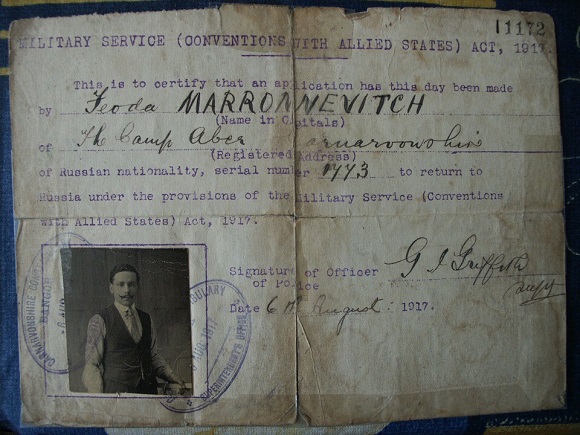 11172
MILITARY SERVICE (CONVENTIONS WITH ALLIED STATES) ACT, 1917.
This is to certify that an application has this day been made
by Feoda MARRONNEVITCH
(Name in Capitals)
of The Camp Aber
(Registered Address)
of Russian nationality, serial number 1773 to return to
Russia under the provisions of the Military Service (Conventions
with Allied States) Act, 1917.
Signature of Officer G I Griffith
of Police
Supt
Date 6th August 1917.
CARNARVONSHIRE
BANGOR
AUG 1917
SUPERINTENDENT'S OFFICE